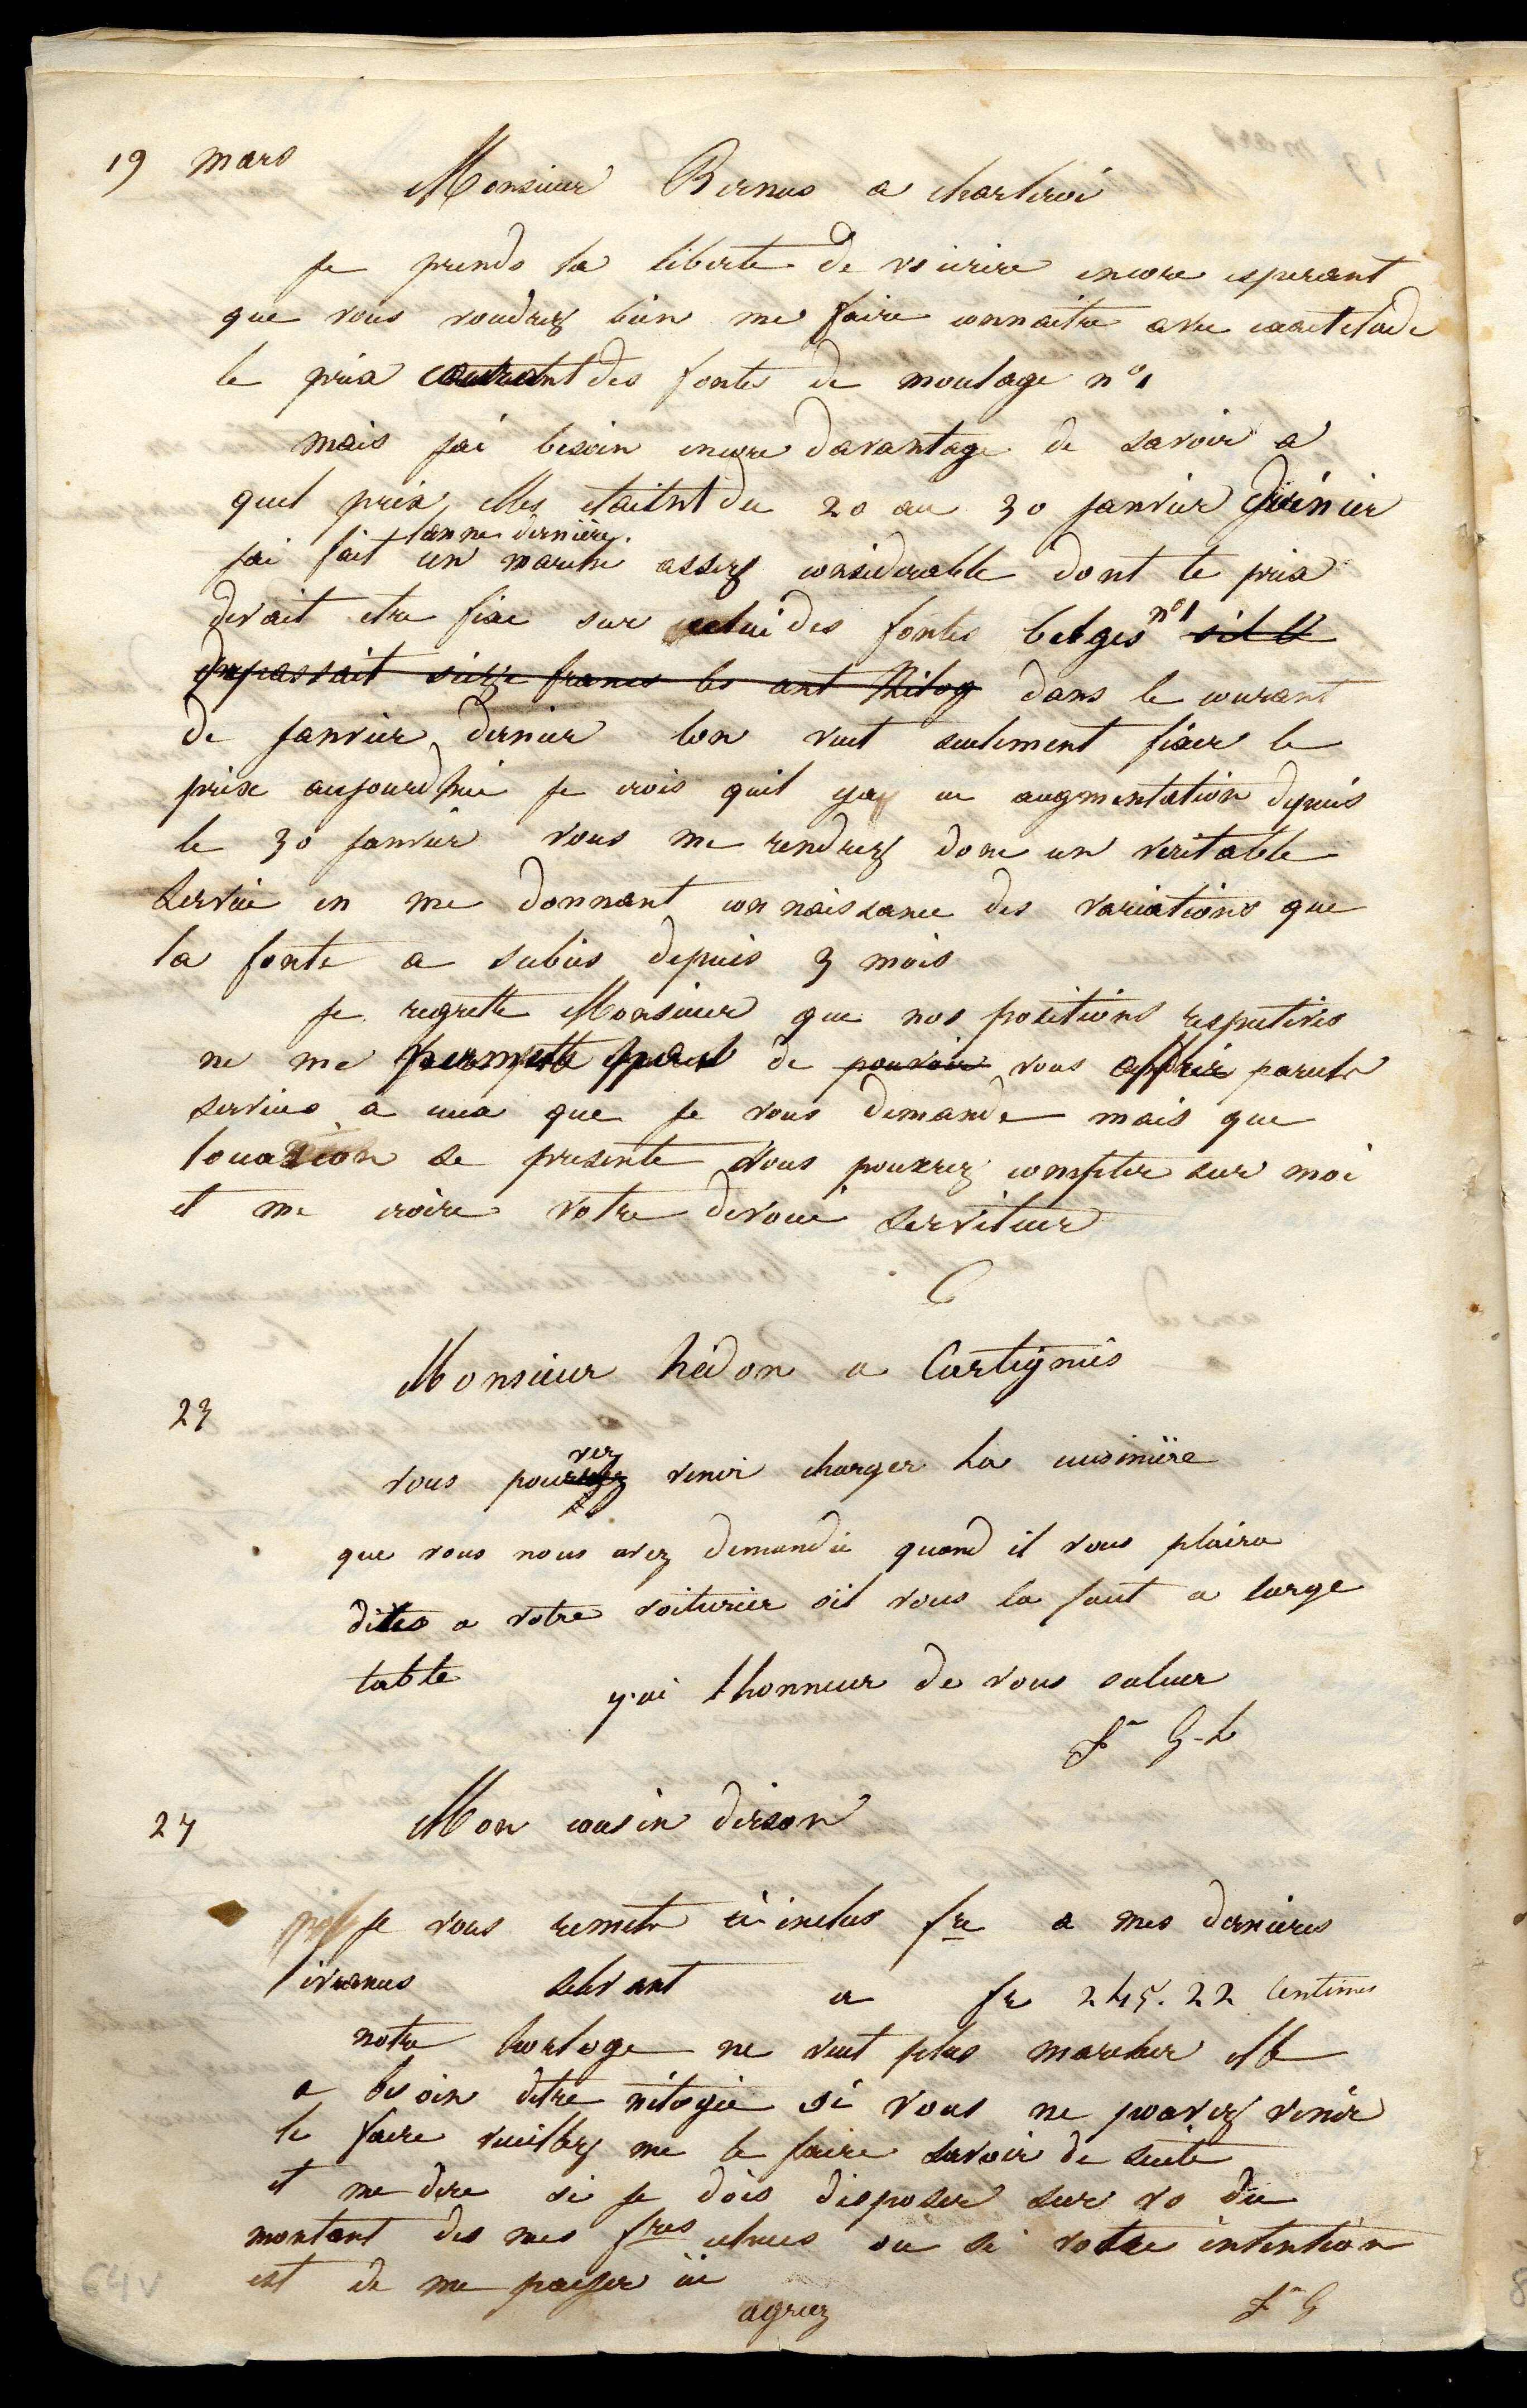 19 mars
Monsieur Bernus a charleroi
Je prends la liberte de vs ecrire encore esperant
que vous voudrez bien me faire connaitre avec exactitude
le prix courant des fontes de moulage n° 1
mais jai besoin encore davantage de savoir a
quel prix elles etaient du 20 au 30 janvier dernier
lanne dernière.
jai fait un marche assez considerable dont le prix
devait etre fixe sur celui des fontes belges n° 1 sil le
depassait seize francs les cent kilog dans le courant
de janvier dernier lon veut seulement fixer le
prix aujourdhui je crois quil y a eu augmentation depuis
le 30 janvier vous me rendrez donc un veritable
service en me donnant connaissance des variations que
la fonte a subies depuis 3 mois
je regrette Monsieur que nos positions respectives
ne me permette de pouvoir vous offrir pareils
services a ceux que je vous demande mais que
loccasion se presente vous pouvez compter sur moi
et me croire votre devoué serviteur
G
Monsieur hédon a Cartignies
23
vous pourez vez venir charger la cuisinière
que vous nous avez demandée quand il vous plaira
dites a votre voiturier s'il vous la faut a large
table
y.ai lhonneur de vous saluer
Jn G-L
27
Mon cousin dirson
je vous remets ci inclus fre a mes dernières
livrances a fr 245.22 Centimes
notre horloge ne veut plus marcher elle
a besoin detre nétoyée si vous ne pouvez venir
le faire veuillez me le faire savoir de suite
et me dire si je dois disposer sur vs du
montant des mes fres echues ou si votre intention
est de me payer ici
agreez
Jn G
64v